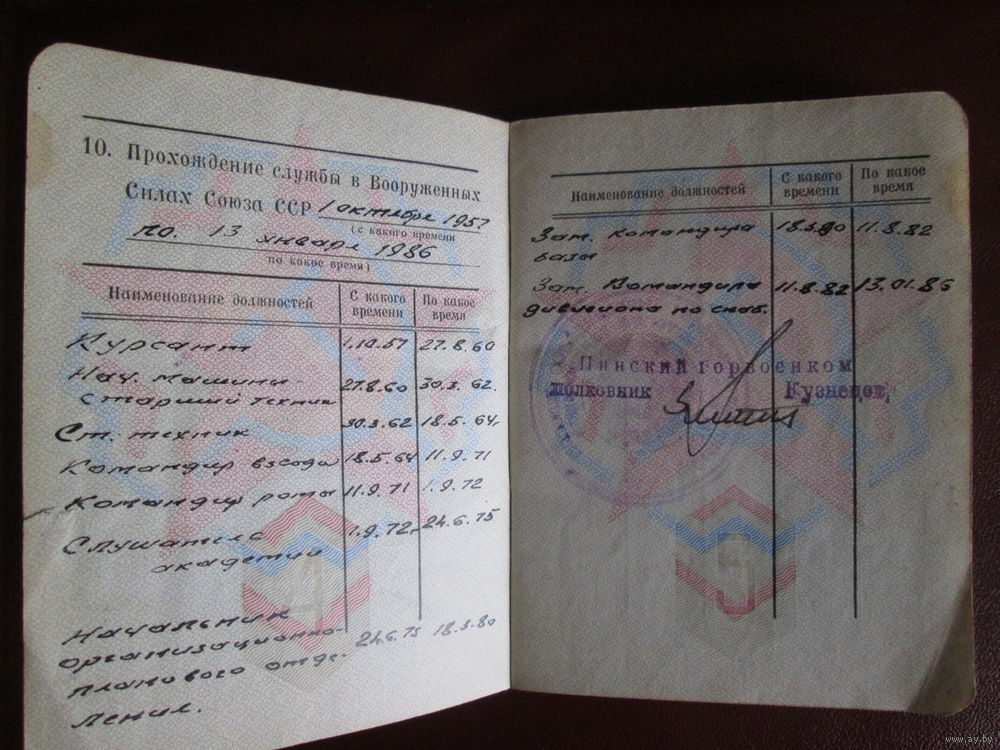 10. Прохождение службы в Вооруженных
Силах Союза ССР 1 октября 1957
(с какого времени
по. 13 января 1986
по какое время)
Наименование должностей С какого времени По какое время
Курсант 1.10.57 27.8.60
Нач. машины-
старший техник 27.8.60 30.3.62.
Ст. техник 30.3.62 18.5.64.
Командир взвода 18.5.64 11.9.71
Командир роты 11.9.71 1.9.72
Слушатель
академии 1.9.72. 24.6.75
Начальник
организационно-
планового отде- 24.6.75 18.3.80
ления.
4
Наименование должностей С какого времени По какое время
Зам. командира 18.3.80 11.8.82
базы
Зам. Командира 11.8.82 13.01.86
дивизиона по снаб.
Пинский горвоенком
полковник Кузнецов
5
www.ay.by